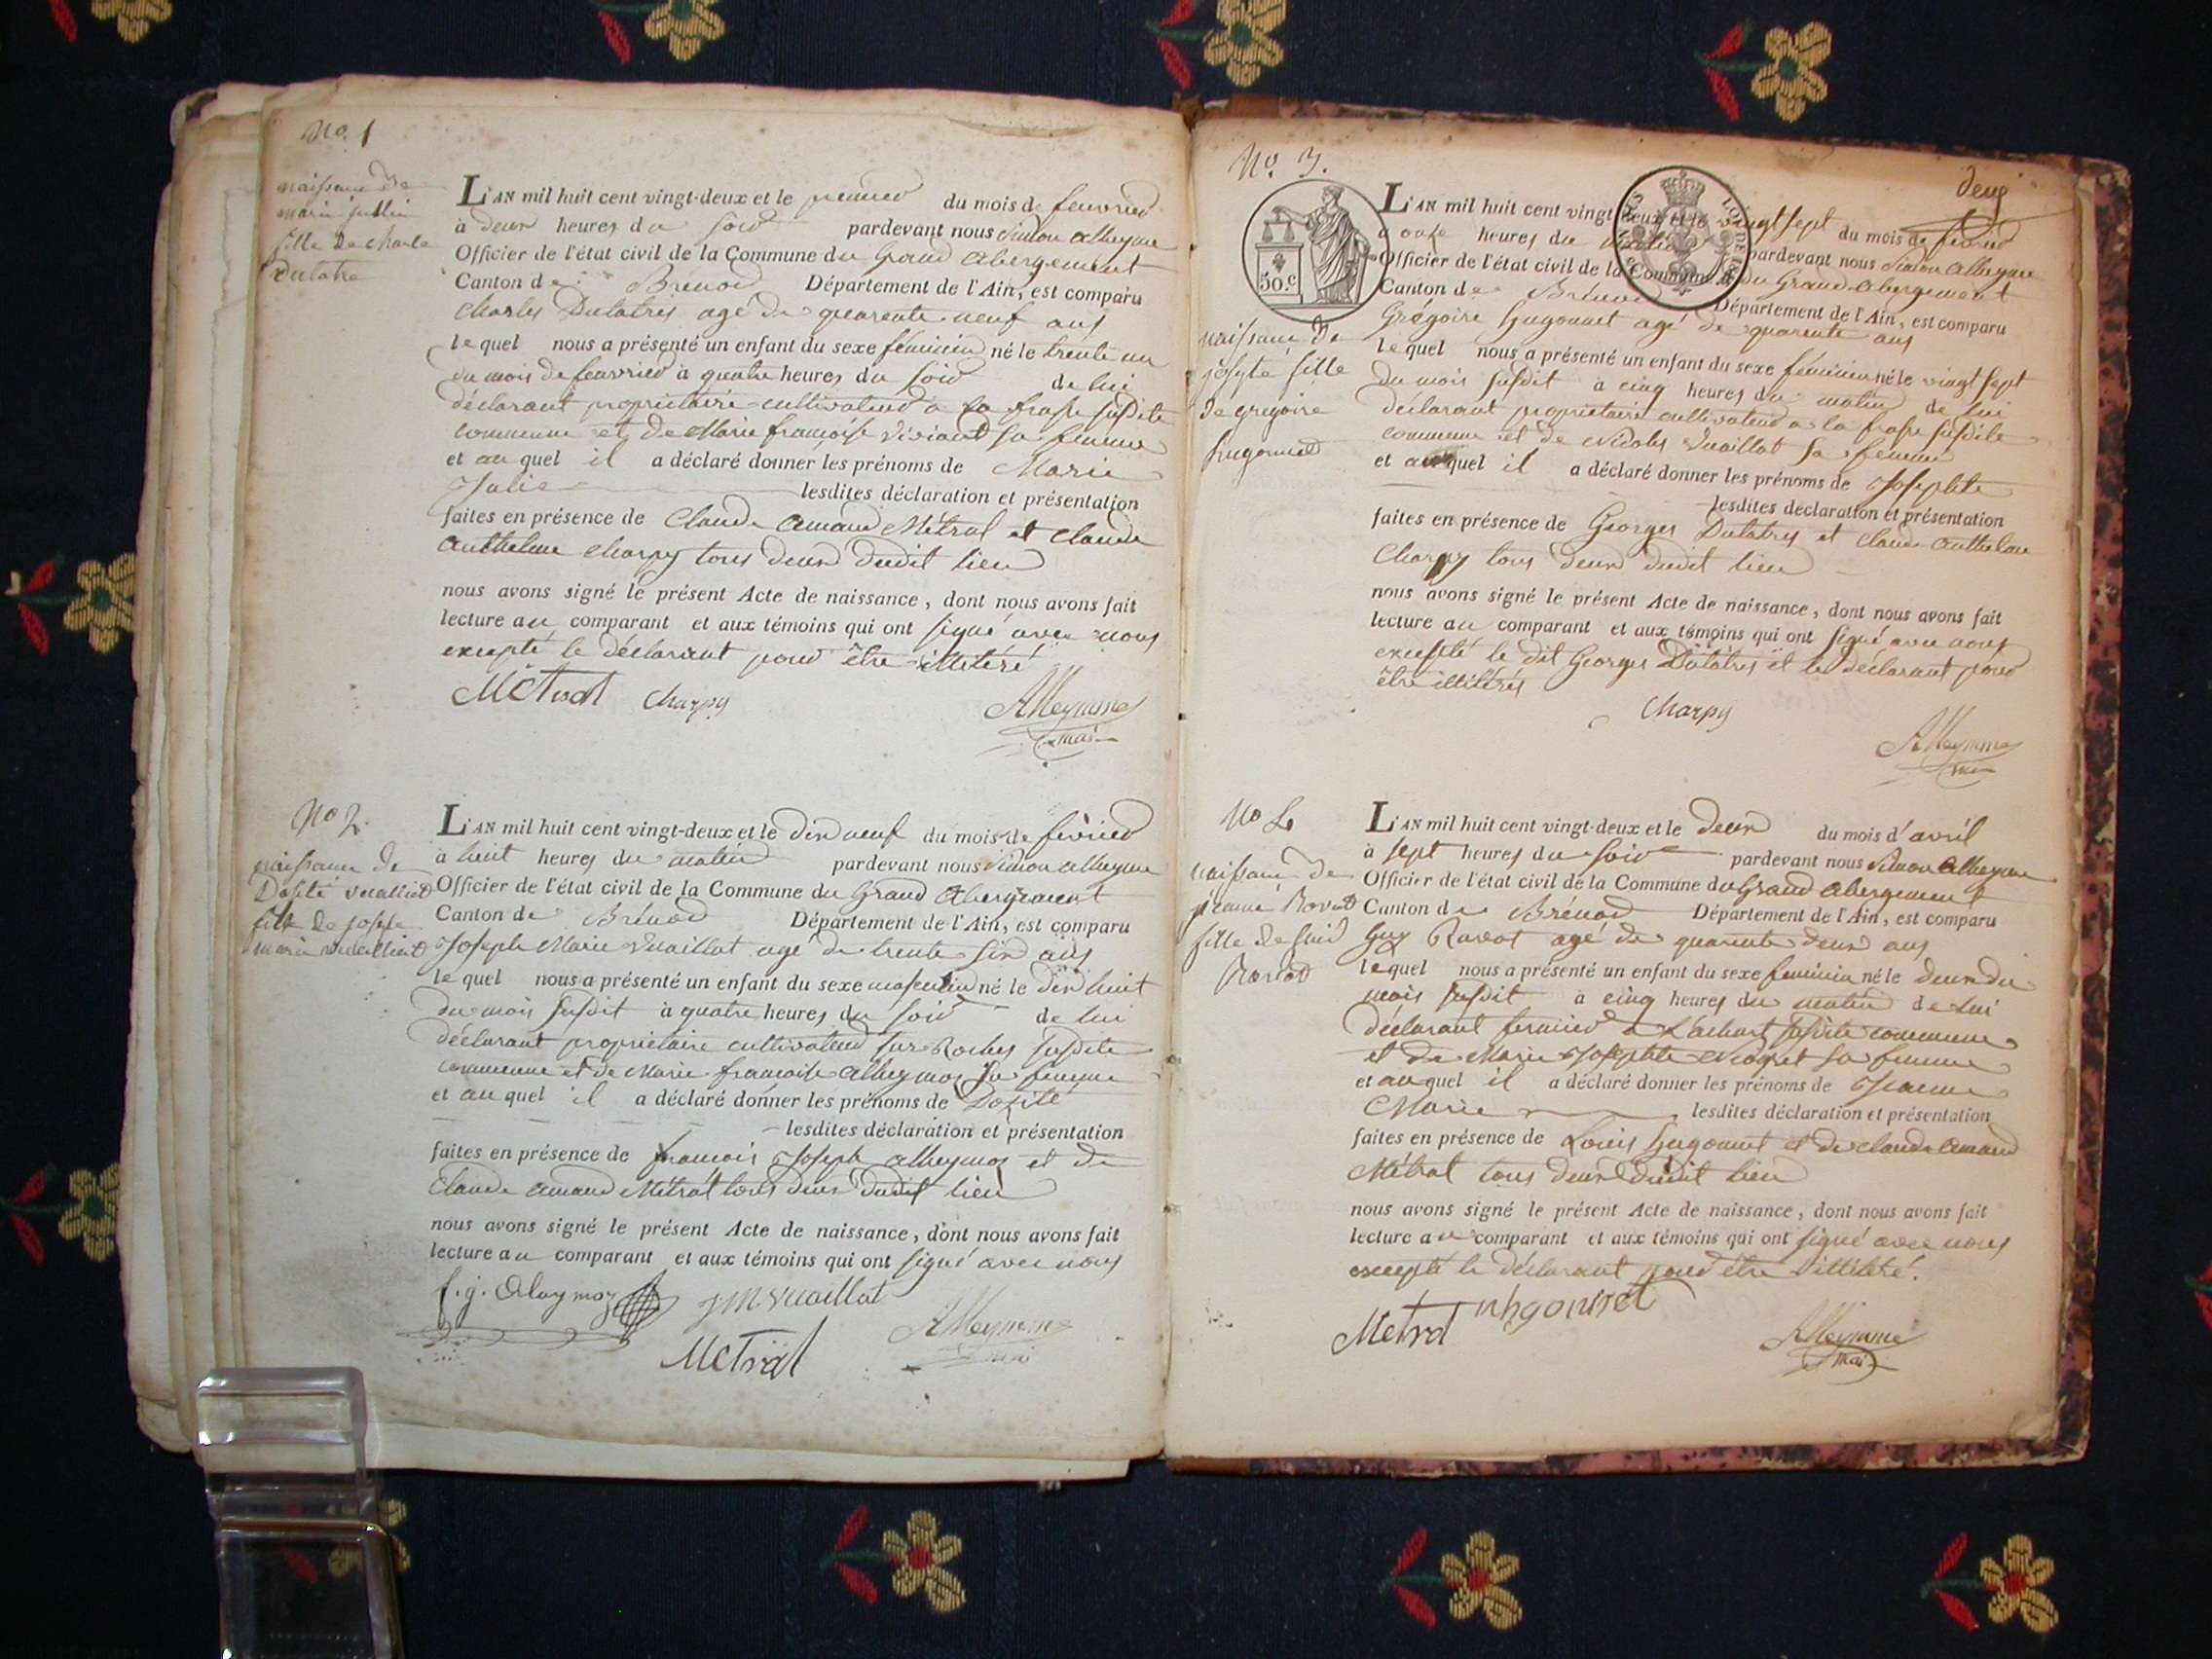 No. 1
naissance de
marie jullie
fille de charle
dutatre
L'AN mil huit cent vingt-deux et le premier du mois de feuvrier
à deux heures du soir pardevant nous Simon alleyme
Officier de l'état civil de la Commune du Grand abergement
Canton de Brenod Département de l'Ain, est comparu
Charles Dutatres agé de quarente neuf ans
lequel nous a présenté un enfant du sexe féminin né le trente un
du mois de feuvrier à quatre heures du soir de lui
déclarant propriétaire cultivateur a la frasse susdite
commune et de Marie françoise Viviant sa femme
et au quel il a déclaré donner les prénoms de Marie
Julie lesdites déclaration et présentation
faites en présence de Claude Amand Métral et Claude
Anthelme Charpy tous deux dudit lieu
nous avons signé le présent Acte de naissance, dont nous avons fait
lecture au comparant et aux témoins qui ont signé avec nous
excepté le déclarant pour être illitéré
Metral Charpy Alleymme
mai
No 2.
naissance de
Dosité vuaillat
fille de joseph
marie vuailliat
L'AN mil huit cent vingt-deux et le dix neuf du mois de février
à huit heures du matin pardevant nous Simon alleyme
Officier de l'état civil de la Commune du Grand Abergement
Canton de Brénod Département de l'Ain, est comparu
Joseph Marie Vuaillat agé de trente six ans
lequel nous a présenté un enfant du sexe masculin né le dix huit
du mois susdit à quatre heures du soir de lui
déclarant propriétaire cultivateur sur Roches susdite
commune et de Marie françoise alleymoz sa femme
et au quel il a déclaré donner les prénoms de Dozité
lesdites déclaration et présentation
faites en présence de francois Joseph alleymoz et de
Claude amand Métral tous deux dudit lieu
nous avons signé le présent Acte de naissance, dont nous avons fait
lecture au comparant et aux témoins qui ont signé avec nous
f. j. Alaymoz jm vuaillat
Metral Alleymme
No. 3.
deux
50.c
naissance de
josyte fille
de gregoire
hugonnet
L'AN mil huit cent vingt-deux et le vingt sept du mois de février
à onze heures du matin pardevant nous Simon alleyme
Officier de l'état civil de la Commune du Grand abergement
Canton de Brénod Département de l'Ain, est comparu
Grégoire hugonnet agé de quarente ans
lequel nous a présenté un enfant du sexe féminin né le vingt sept
du mois susdit à cinq heures du matin de lui
déclarant propriétaire cultivateur a la frasse susdite
commune et de Nicole Vuaillat sa femme
et au quel il a déclaré donner les prénoms de Josephte
lesdites déclaration et présentation
faites en présence de Georges Dutatres et Claude Anthelme
Charpy tous deux dudit lieu
nous avons signé le présent Acte de naissance, dont nous avons fait
lecture au comparant et aux témoins qui ont signé avec nous
excepté le dit Georges Dutatres et le déclarant pour
être illitérés
Charpy
Alleymme
No 4
naissance de
jeanne Ravat
fille de
L'AN mil huit cent vingt-deux et le deux du mois d'avril
à sept heures du soir pardevant nous Simon Alleyme
Officier de l'état civil de la Commune du Grand abergement
Canton de Brénod Département de l'Ain, est comparu
Guy Ravat agé de quarente deux ans
lequel nous a présenté un enfant du sexe feminin né le deux du
mois susdit à cinq heures du matin de lui
déclarant fermier a L'achart susdite commune
et de Marie Josephte Niogret sa femme
et au quel il a déclaré donner les prénoms de Jeanne
Marie lesdites déclaration et présentation
faites en présence de Louis hugonnet et de claude amand
Métral tous deux dudit lieu
nous avons signé le présent Acte de naissance, dont nous avons fait
lecture au comparant et aux témoins qui ont signé avec nous
excepté le déclarant pour être illitéré.
Metral uhgonnet
Alleymme
mai